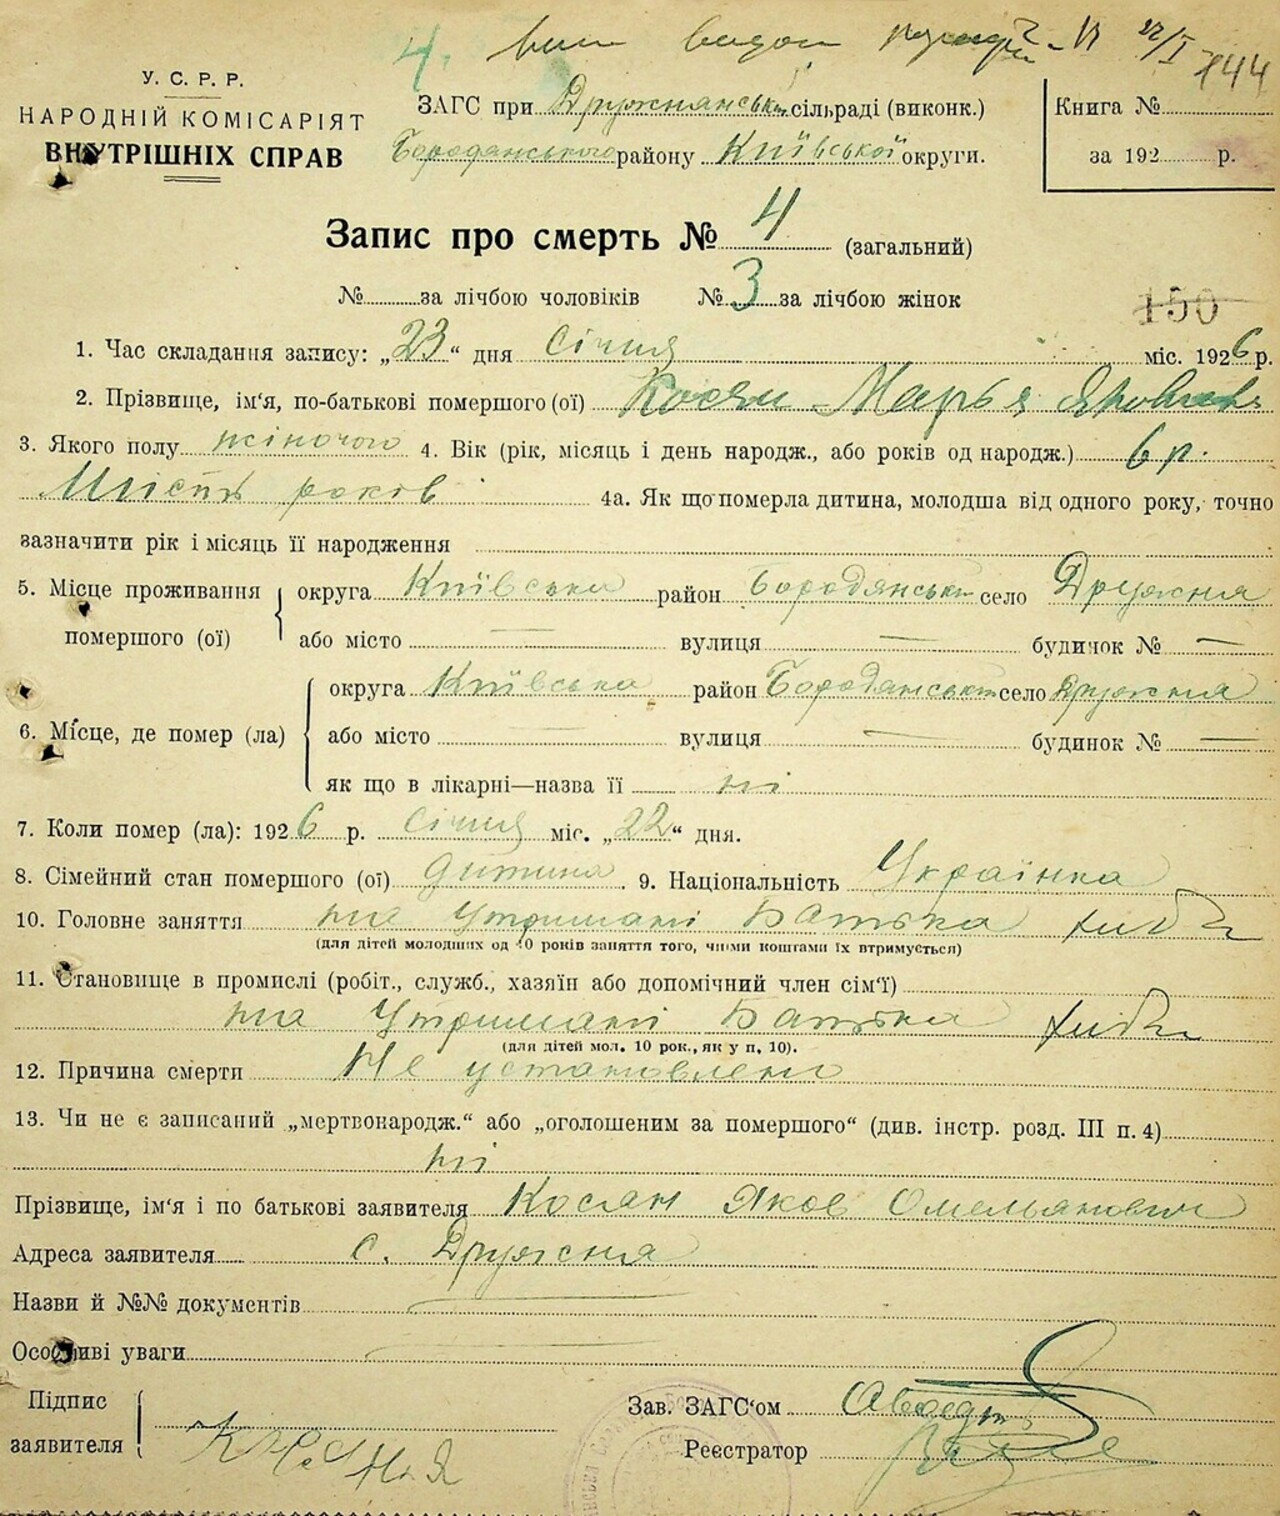 4.
22/I
144
У. С. Р. Р.
НАРОДНІЙ КОМІСАРІЯТ
ВНУТРІШНІХ СПРАВ
ЗАГС при Дружнянськ сільраді (виконк.)
Бородянського району Київської округи.
Книга №
за 192 р.
Запис про смерть № 4 (загальний)
№ за лічбою чоловіків № 3 за лічбою жінок
150
1. Час складання запису: „23“ дня Січня міс. 1926 р.
2. Прізвище, ім'я, по-батькові помершого (ої) Косян Марья Яковлевн
3. Якого полу жіночого 4. Вік (рік, місяць і день народж., або років од народж.) 6 р.
Шість років 4а. Як що померла дитина, молодша від одного року, точно
зазначити рік і місяць її народження
5. Місце проживання помершого (ої) округа Київська район Бородянськ село Дружня
або місто — вулиця — будинок № —
6. Місце, де помер (ла) округа Київська район Бородянськ село Дружня
або місто — вулиця — будинок № —
як що в лікарні—назва її ні
7. Коли помер (ла): 1926 р. Січня міс. „22“ дня.
8. Сімейний стан помершого (ої) дитина 9. Національність Українка
10. Головне заняття на Утримані Батька хліб
(для дітей молодших од 10 років заняття того, чиїми коштами їх втримується)
11. Становище в промислі (робіт., служб., хазяїн або допомічний член сім'ї)
на Утримані Батька хліб
(для дітей мол. 10 рок., як у п. 10).
12. Причина смерти Не установлено
13. Чи не є записаний „мертвонародж.“ або „оголошеним за помершого“ (див. інстр. розд. III п. 4)
ні
Прізвище, ім'я і по батькові заявителя Косян Яков Омельянович
Адреса заявителя с. Дружня
Назви й №№ документів
Особливі уваги
Підпис заявителя
Зав. ЗАГС'ом
Реєстратор